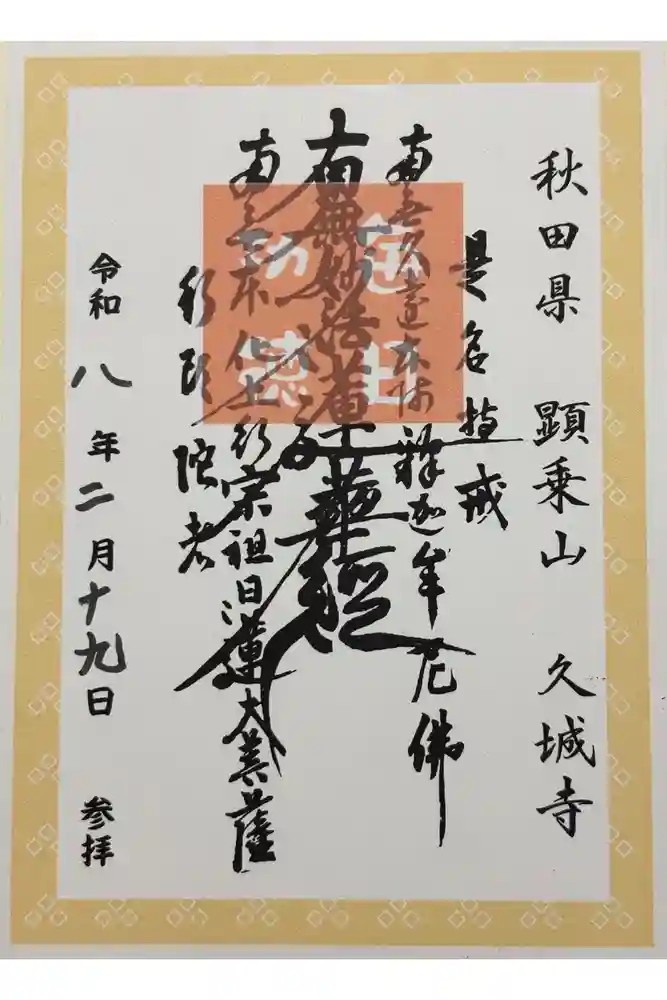 秋田県 顕乗山 久城寺
是名持戒
南無久遠本師釋迦牟尼佛
南無妙法蓮華経
南無本化上行宗祖日蓮大菩薩
行頭陀者
令和八年二月十九日 参拝